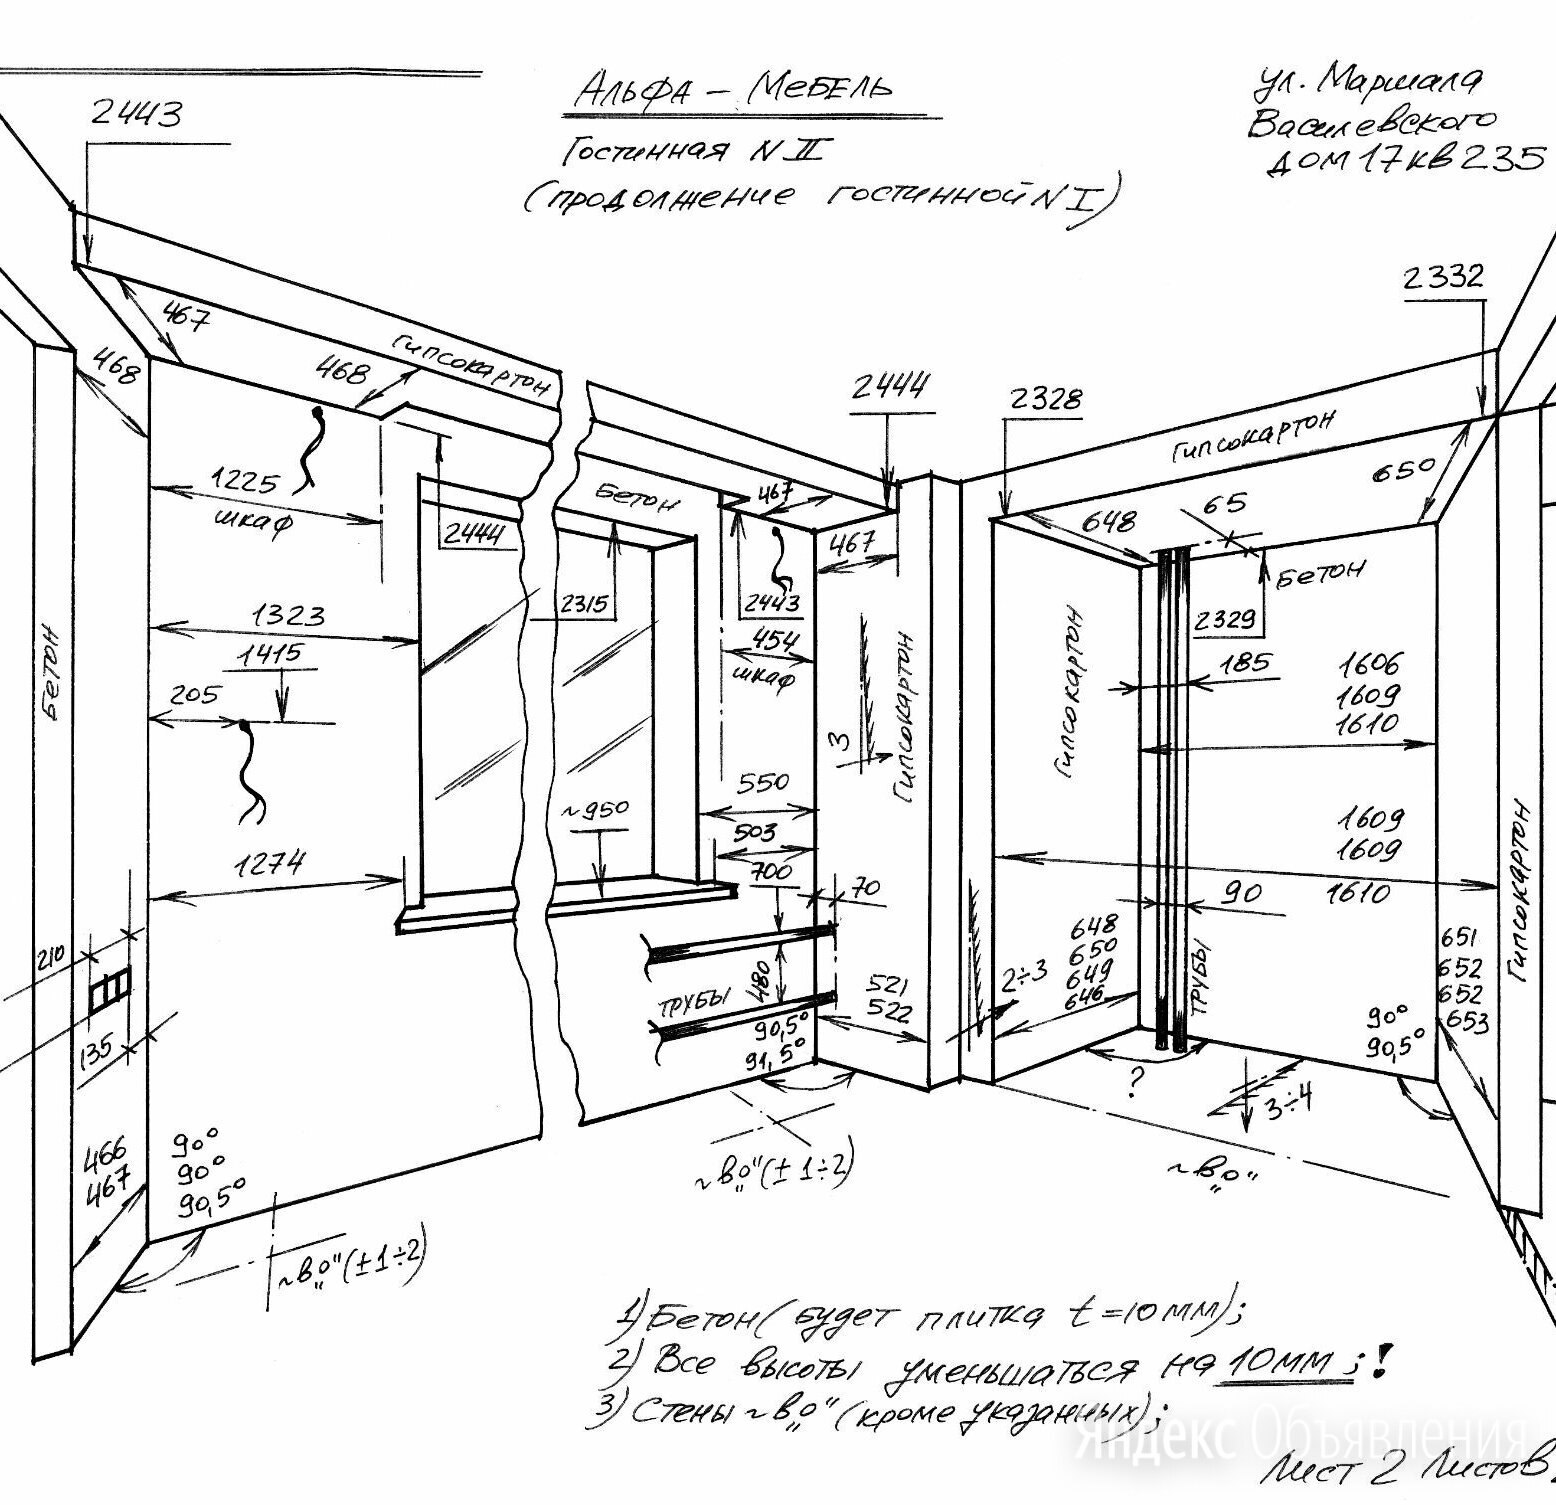 Альфа – Мебель
Гостинная N II
(продолжение гостинной N I)
ул. Маршала
Василевского
дом 17 кв 235
2443
467
468
468
Гипсокартон
1225
шкаф
2444
Бетон
467
2444
467
2315
2443
454
шкаф
Бетон
1323
1415
205
3
Гипсокартон
550
503
~950
1274
700
70
210
135
ТРУБЫ
480
90,5°
91,5°
521
522
466
467
90°
90°
90,5°
~в„0" (±1÷2)
~в„0" (±1÷2)
2332
2328
Гипсокартон
650
648
65
Бетон
2329
Гипсокартон
185
1606
1609
1610
1609
1609
1610
90
ТРУБЫ
Гипсокартон
648
650
649
646
2÷3
651
652
652
653
90°
90,5°
?
3÷4
~в„0"
1) Бетон (будет плитка t=10мм);
2) Все высоты уменьшаться на 10мм; !
3) Стены ~в„0" (кроме указанных);
Яндекс Объявления
Лист 2 Листов